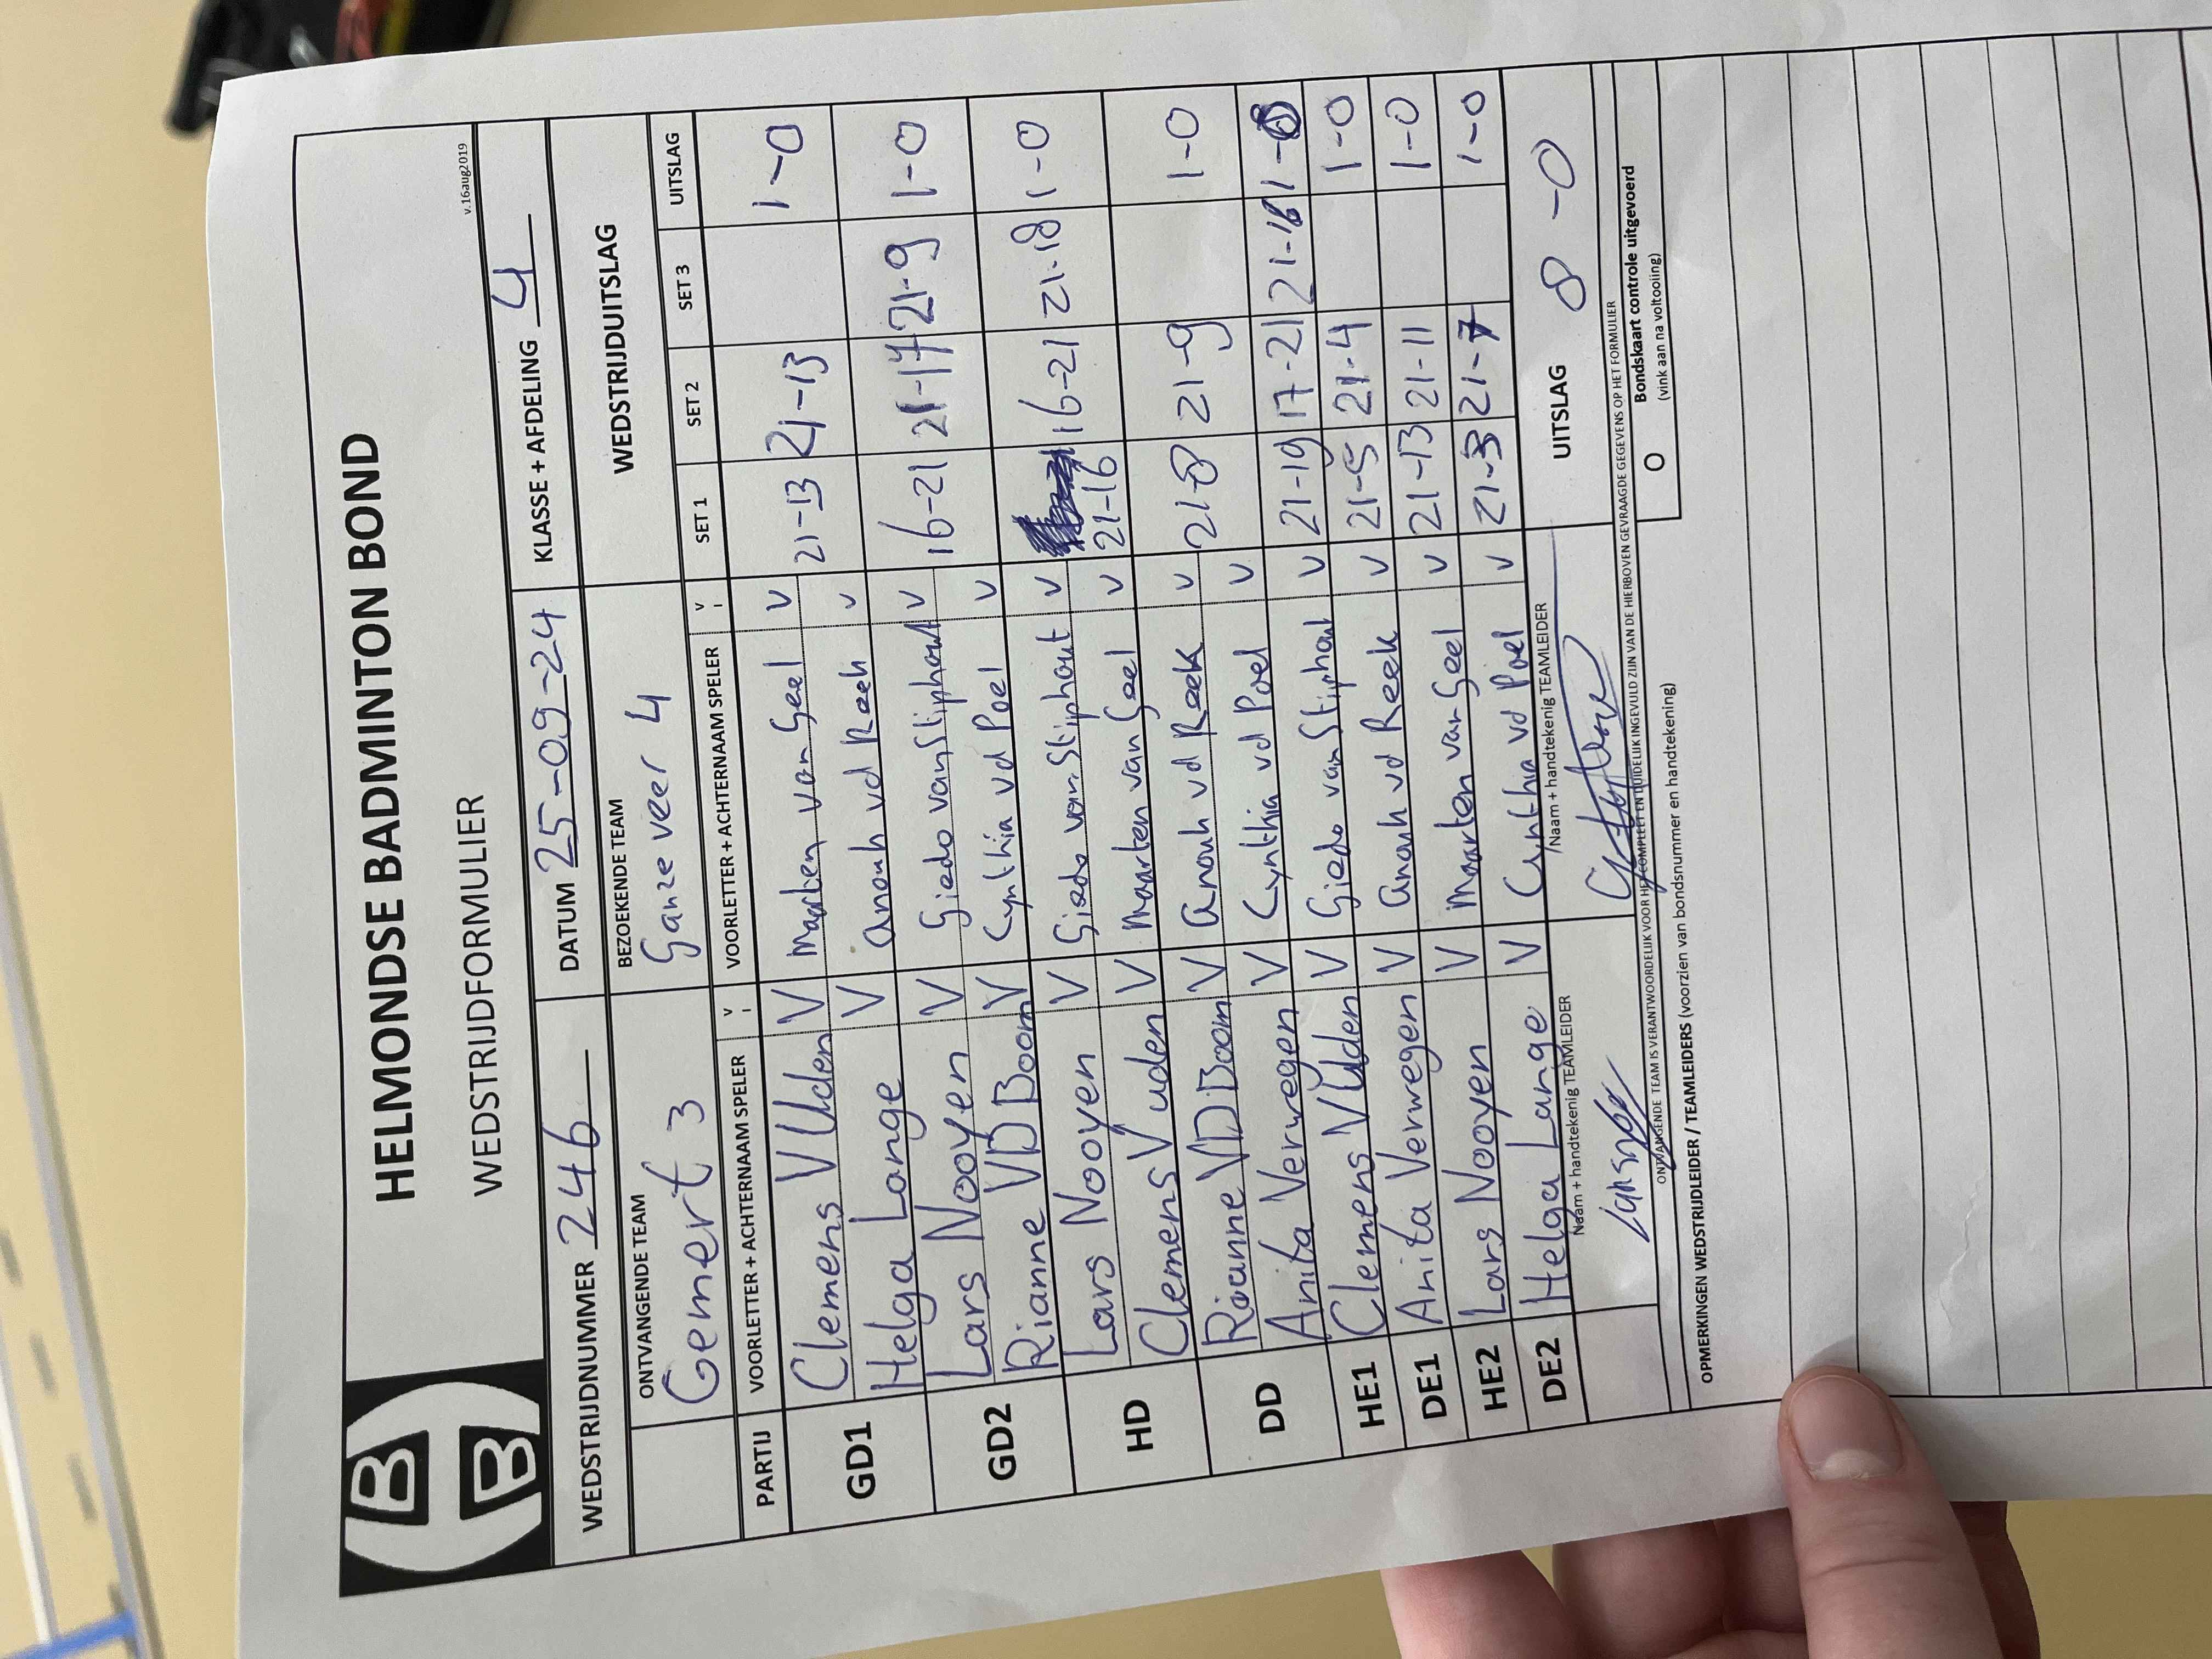 HELMONDSE BADMINTON BOND
WEDSTRIJDFORMULIER
v.16aug2019
WEDSTRIJDNUMMER 246 DATUM 25-09-24 KLASSE + AFDELING 4
ONTVANGENDE TEAM BEZOEKENDE TEAM WEDSTRIJDUITSLAG
Gemert 3 Ganzeveer 4
PARTIJ VOORLETTER + ACHTERNAAM SPELER V I VOORLETTER + ACHTERNAAM SPELER V I SET 1 SET 2 SET 3 UITSLAG
GD1 Clemens V Uden V Maarten van Geel V 21-13 21-13 1-0
Helga Lange V Anouk vd Reek V
GD2 Lars Nooyen V Giedo van Stiphout V 16-21 21-17 21-9 1-0
Rianne VD Boom V Cynthia vd Poel V
HD Lars Nooyen V Giedo van Stiphout V 21-16 16-21 21-18 1-0
Clemens V uden V Maarten van Geel V
DD Rianne VD Boom V Anouk vd Reek V 21-8 21-9 1-0
Anita Verwegen V Cynthia vd Poel V
HE1 Clemens V Uden V Giedo van Stiphout V 21-19 17-21 21-16 1-0
DE1 Anita Verwegen V Anouk vd Reek V 21-5 21-4 1-0
HE2 Lars Nooyen V Maarten van Geel V 21-13 21-11 1-0
DE2 Helga Lange V Cynthia vd Poel V 21-3 21-7 1-0
Naam + handtekenig TEAMLEIDER Naam + handtekenig TEAMLEIDER UITSLAG 8-0
ONTVANGENDE TEAM IS VERANTWOORDELIJK VOOR HET COMPLEET EN DUIDELIJK INGEVULD ZIJN VAN DE HIERBOVEN GEVRAAGDE GEGEVENS OP HET FORMULIER
OPMERKINGEN WEDSTRIJDLEIDER / TEAMLEIDERS (voorzien van bondsnummer en handtekening)
O Bondskaart controle uitgevoerd
(vink aan na voltooiing)